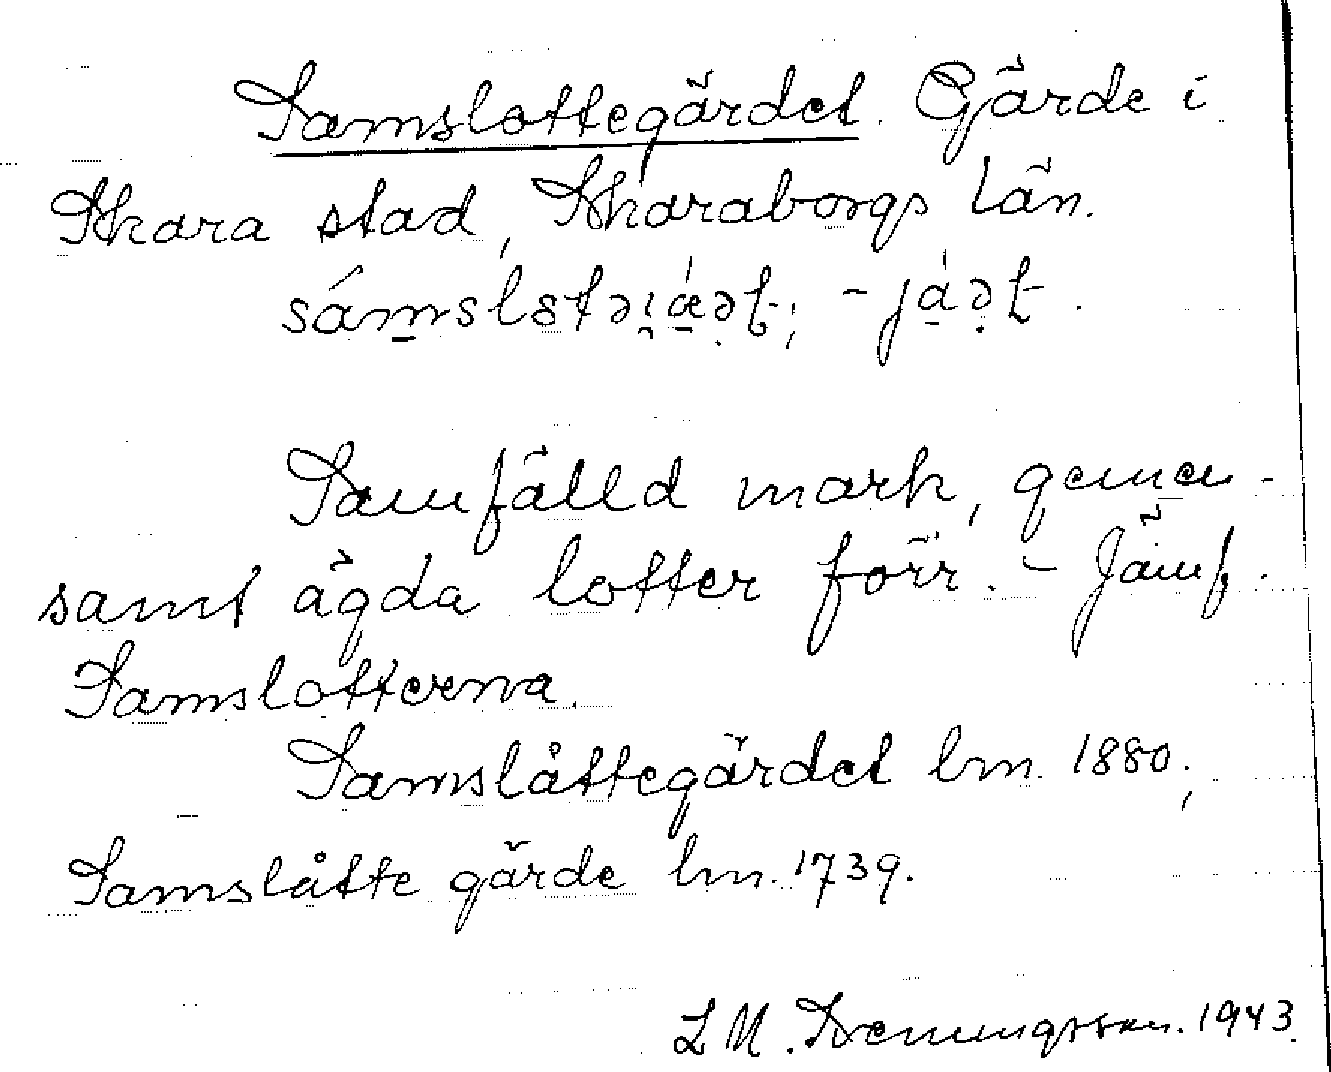 Samslottegärdet. Gärde i
Skara stad, Skaraborgs län.
Samfälld mark, gemen-
samt ägda lotter förr. - Jämf.
Samslotterna.
Samslåttegärdet lm. 1880;
Samslåtte gärde lm. 1739.
1943.